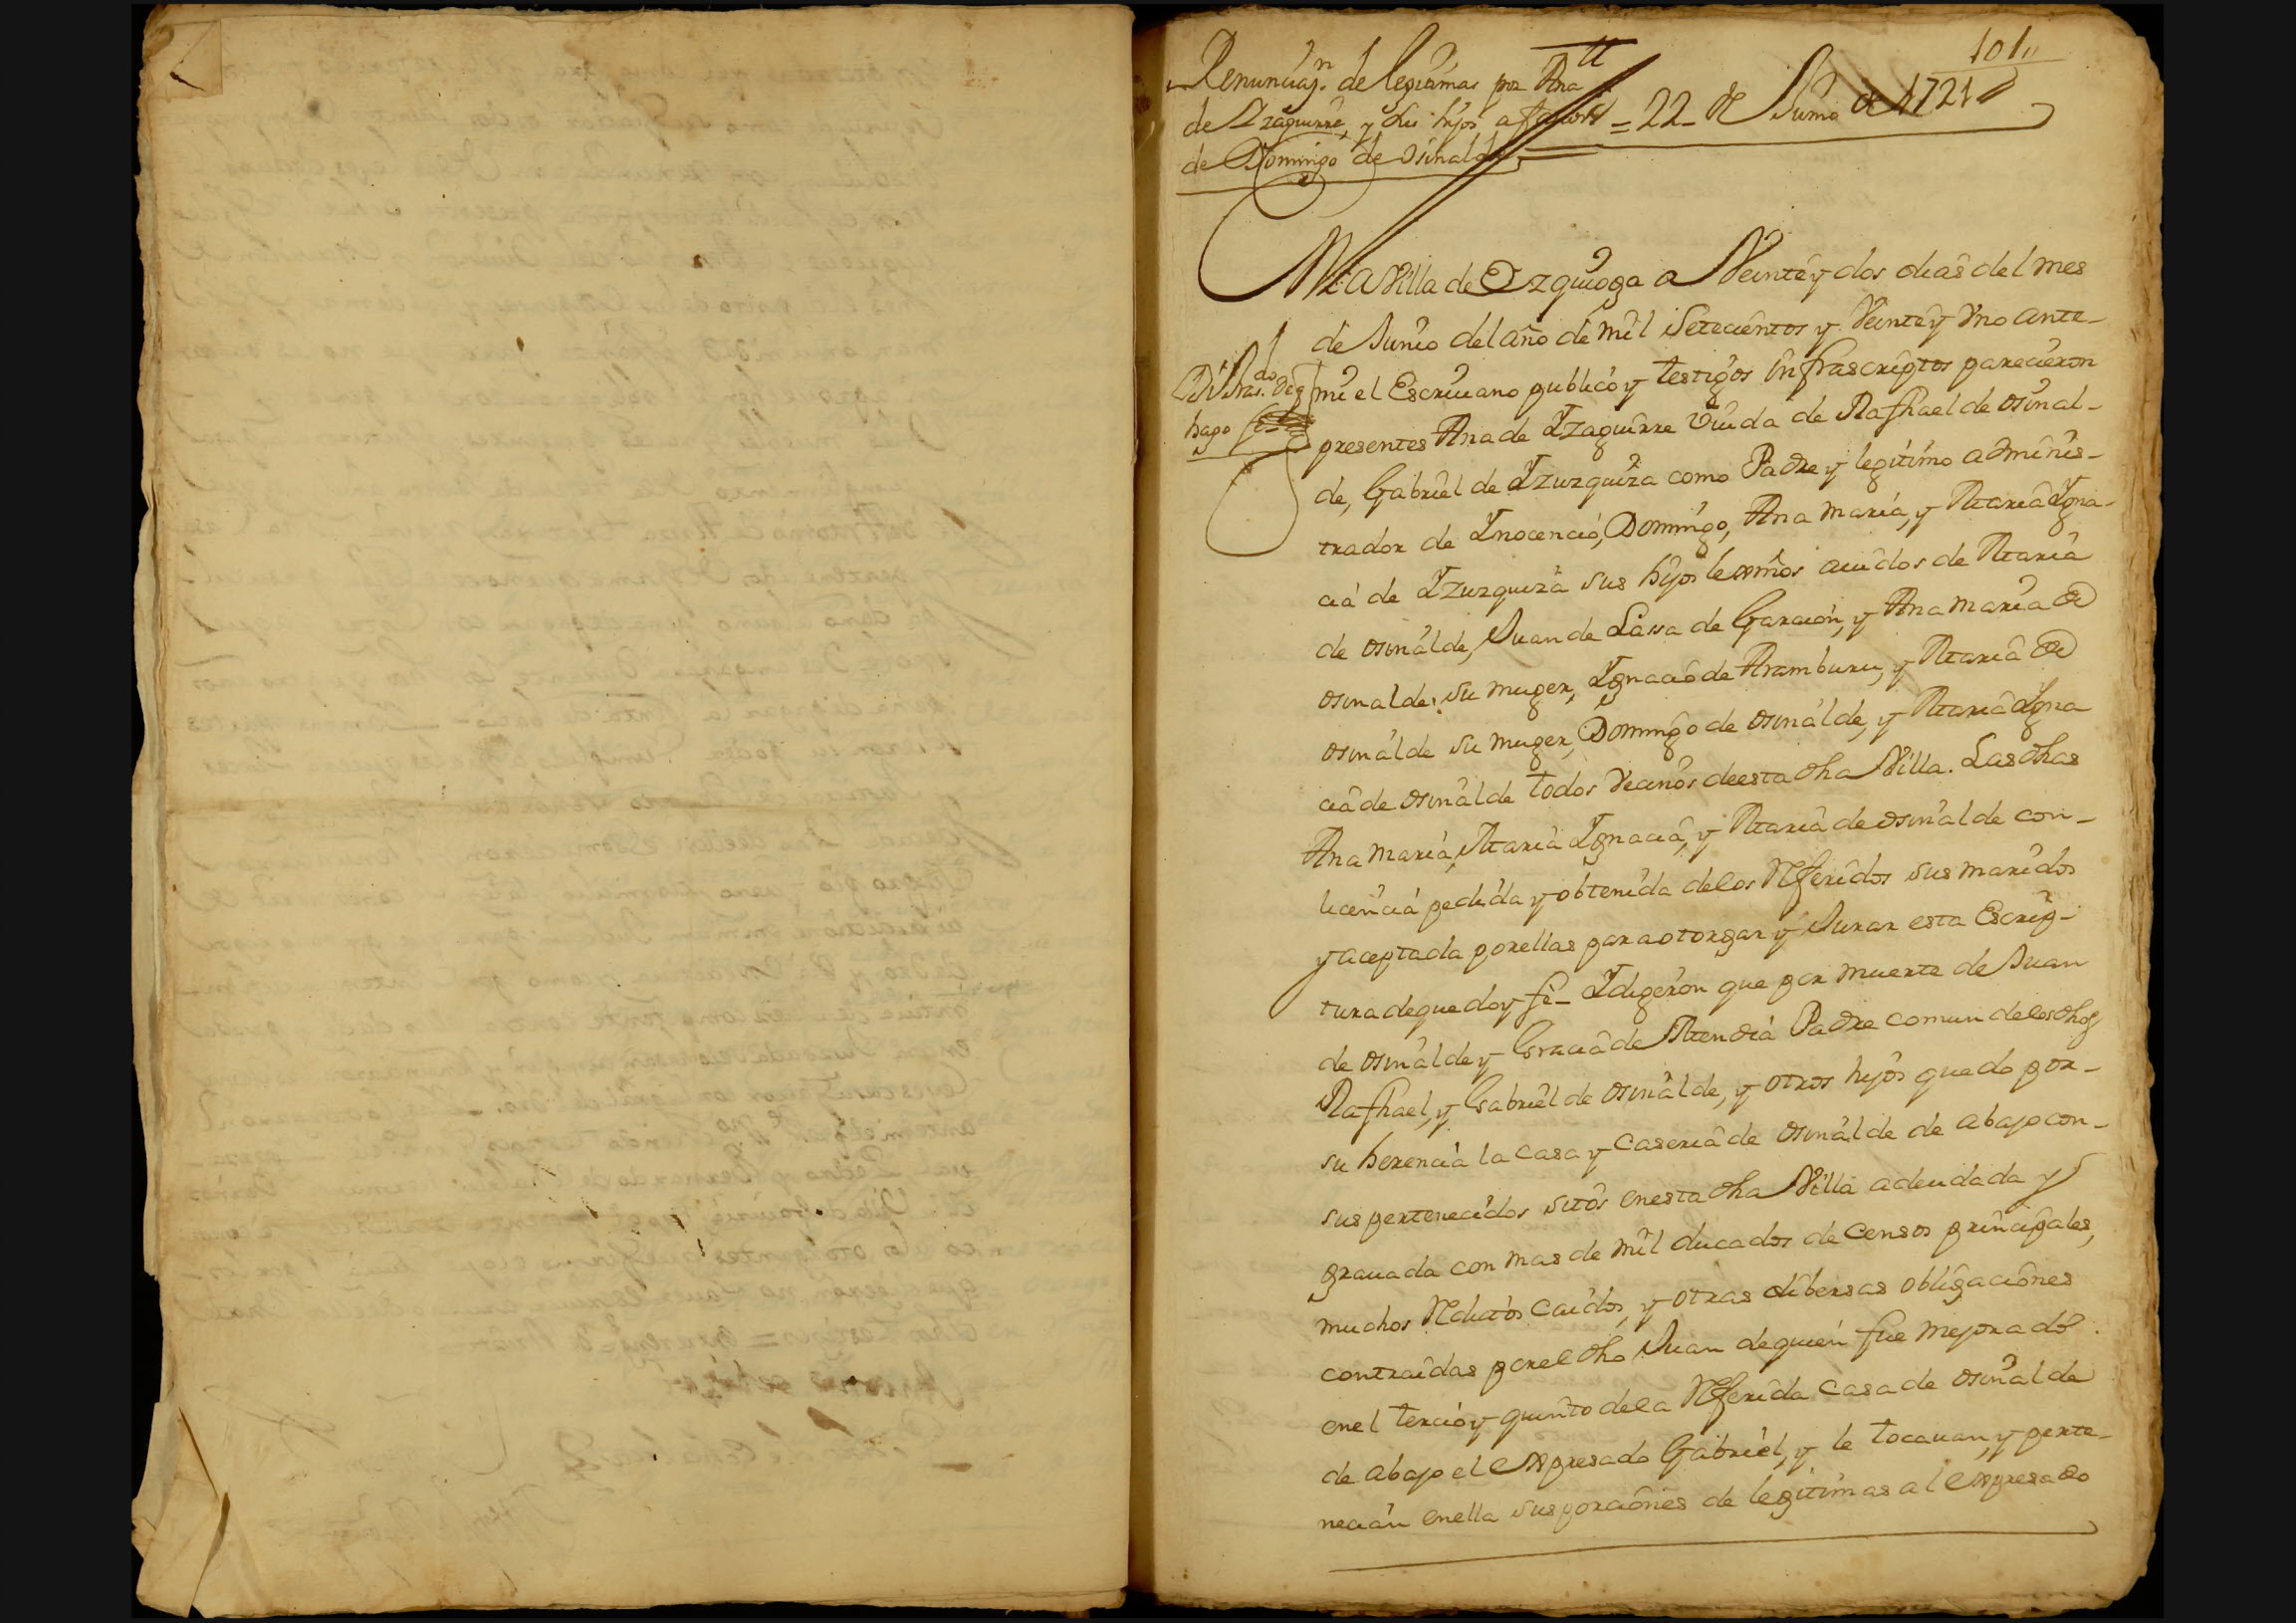 101
Renunciaz.n de legitimas por Ana
de Yzaguirre, y sus hijos, a favor = 22 - de Junio de 1721
de Domingo de Osinalde
En la Villa de Ezquioga a Veinte y dos dias del mes
de Junio del año de mil Setecientos y Veinte y Vno ante -
mi el Escriuano publico y testigos infrascriptos parecieron
hago
presentes Ana de Yzaguirre Viuda de Raphael de Osinal -
de, Gabriel de Yzurquiza como Padre y legitimo adminis -
trador de Ynocencio, Domingo, Ana Maria, y Maria Ygna -
cia de Yzurquiza sus hijos lexmos auidos de Maria
de Osinalde, Juan de Lassa de Garacion, y Ana Maria de
Osinalde, su muger, Ygnacio de Aramburu, y Maria de
Osinalde su muger, Domingo de Osinalde, y Maria Ygna
cia de Osinalde todos Vecinos de esta dha Villa. Las dhas
Ana Maria, Maria Ygnacia, y Maria de Osinalde con -
licencia pedida y obtenida de los Referidos sus maridos
y aceptada por ellas para otorgar y Jurar esta Escrip -
tura de que doy fe - Y digeron que por muerte de Juan
de Osinalde y Gracia de Mendia Padre comun de los dhos
Raphael, y Gabriel de Osinalde, y otros hijos quedo por -
su herencia la casa y Caseria de Osinalde de abajo con -
sus pertenecidos sitos en esta dha Villa adeudada y
grauada con mas de mil ducados de Censos principales,
muchos Reditos Caidos, y otras dibersas obligaciones
contraidas por el dho Juan de quien fue mejorado
en el tercio y quinto de la Referida Casa de Osinalde
de abajo el expresado Gabriel, y le tocauan, y perte -
necian en ella sus porciones de legitimas al expresado